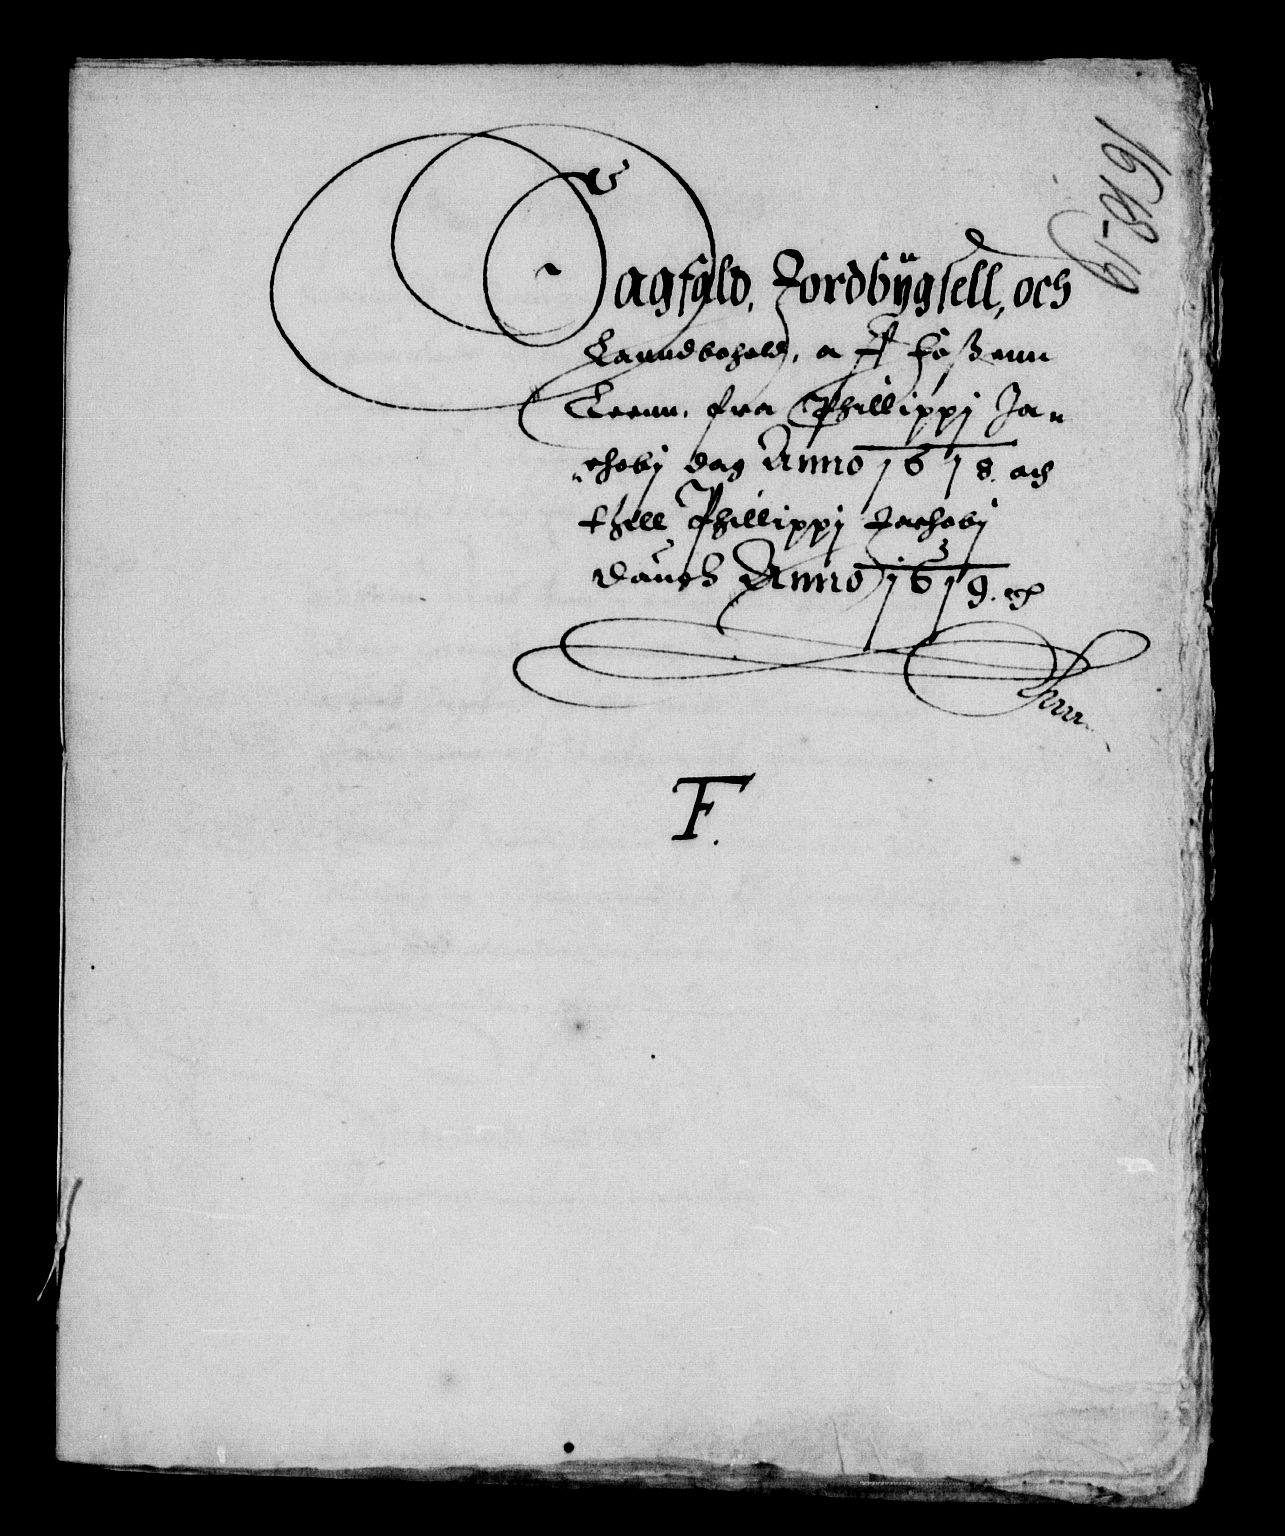 1618-19
Sagfald, Jordbÿgsell, och
Lanndbohold, aff Håßenn
Leenn, fra Phillippj Ja„
„chobj dag Anno 1618. och
thill Phillippj Jachobj
dauch Anno 1619. etc
F.